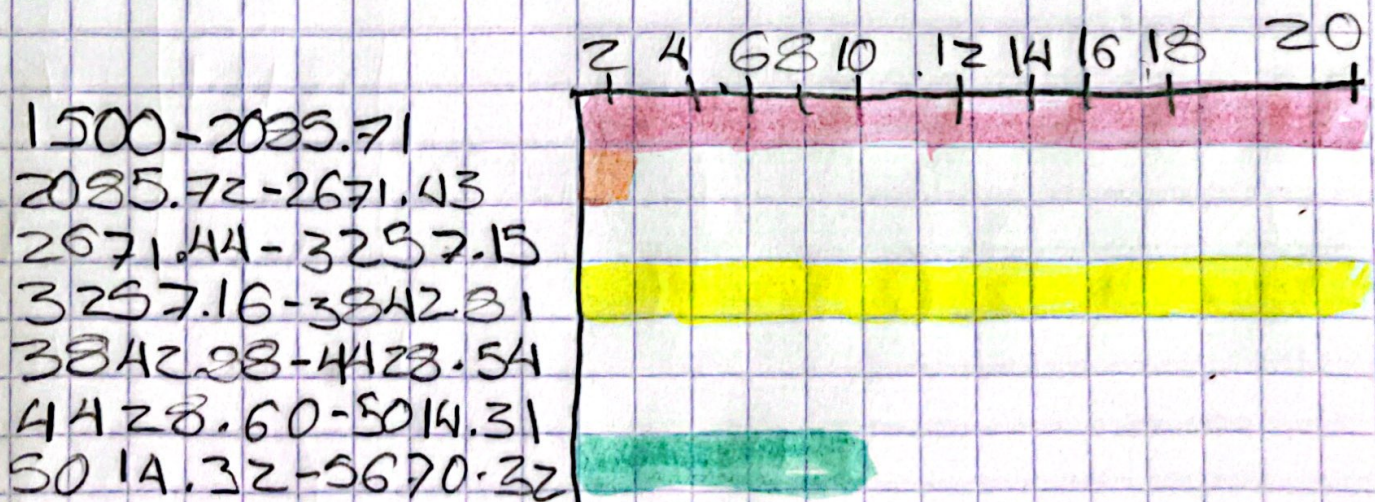 2 4 6 8 10 12 14 16 18 20
1500-2085.71
2085.72-2671.43
2671.44-3257.15
3257.16-3842.81
3842.98-4428.54
4428.60-5014.31
5014.32-5670.32